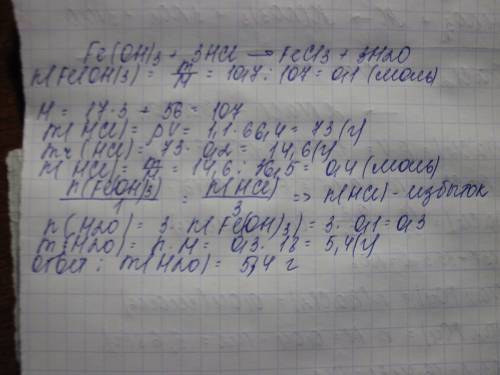 Fe(OH)3 + 3HCl → FeCl3 + 3H2O
n(Fe(OH)3) = m/M = 10,7 : 107 = 0,1 (моль)
M = 17·3 + 56 = 107
m(HCl) = ρV = 1,1·66,4 = 73 (г)
mч(HCl) = 73·0,2 = 14,6(г)
n(HCl) = m/M = 14,6 : 36,5 = 0,4 (моль)
n(Fe(OH)3)/1 = n(HCl)/3 => n(HCl) - избыток
n(H2O) = 3·n(Fe(OH)3) = 3·0,1 = 0,3
m(H2O) = n·M = 0,3·18 = 5,4(г)
ответ: m(H2O) = 5,4 г